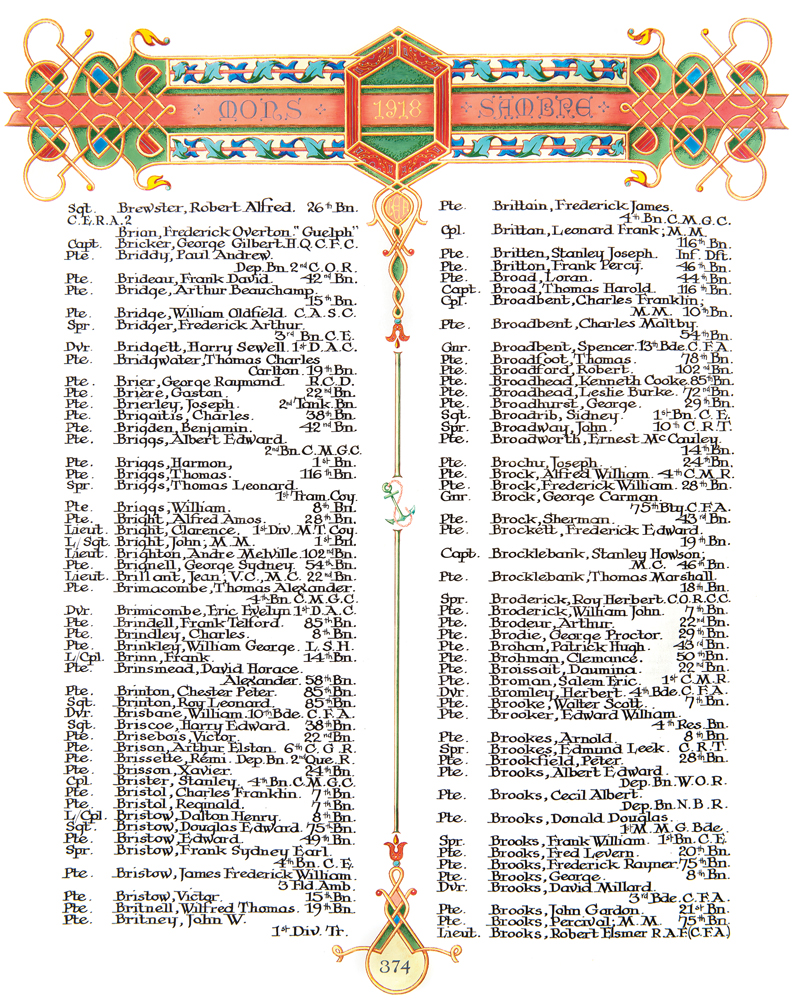 MONS 1918 SAMBRE
Sgt. Brewster, Robert Alfred. 26th Bn.
C.E.R.A.2
Brian, Frederick Overton. "Guelph"
Capt. Bricker, George Gilbert. H.Q. C.F.C.
Pte. Briddy, Paul Andrew.
Dep. Bn. 2nd C.O.R.
Pte. Brideau, Frank David. 42nd Bn.
Pte. Bridge, Arthur Beauchamp.
15th Bn.
Pte. Bridge, William Oldfield. C.A.S.C.
Spr. Bridger, Frederick Arthur.
3rd Bn. C.E.
Dvr. Bridgett, Harry Sewell. 1st D.A.C.
Pte. Bridgwater, Thomas Charles
Carlton. 19th Bn.
Pte. Brier, George Raymond. R.C.D.
Pte. Brière, Gaston. 22nd Bn.
Pte. Brierley, Joseph. 2nd Tank. Bn.
Pte. Brigaitis, Charles. 38th Bn.
Pte. Brigden, Benjamin. 42nd Bn.
Pte. Briggs, Albert Edward.
2nd Bn. C.M.G.C.
Pte. Briggs, Harmon, 1st Bn.
Pte. Briggs, Thomas. 116th Bn.
Spr. Briggs, Thomas Leonard.
1st Tram. Coy.
Pte. Briggs, William. 8th Bn.
Pte. Bright, Alfred Amos. 28th Bn.
Lieut. Bright, Clarence. 1st Div. M.T. Coy.
L/Sgt. Bright, John; M.M. 1st Bn.
Lieut. Brighton, Andre Melville. 102nd Bn.
Pte. Brignell, George Sydney. 54th Bn.
Lieut. Brillant, Jean; V.C., M.C. 22nd Bn.
Pte. Brimacombe, Thomas Alexander.
4th Bn. C.M.G.C.
Dvr. Brimicombe, Eric Evelyn. 1st D.A.C.
Pte. Brindell, Frank Telford. 85th Bn.
Pte. Brindley, Charles. 8th Bn.
Pte. Brinkley, William George. L.S.H.
L/Cpl. Brinn, Frank. 14th Bn.
Pte. Brinsmead, David Horace
Alexander. 58th Bn.
Pte. Brinton, Chester Peter. 85th Bn.
Sgt. Brinton, Roy Leonard. 85th Bn.
Dvr. Brisbane, William. 10th Bde. C.F.A.
Sgt. Briscoe, Harry Edward. 38th Bn.
Pte. Brisebois, Victor. 22nd Bn.
Pte. Brison, Arthur Elston. 6th C.G.R.
Pte. Brissette, Rémi. Dep. Bn. 2nd Que. R.
Pte. Brisson, Xavier. 24th Bn.
Cpl. Brister, Stanley. 4th Bn. C.M.G.C.
Pte. Bristol, Charles Franklin. 7th Bn.
Pte. Bristol, Reginald. 7th Bn.
L/Cpl. Bristow, Dalton Henry. 8th Bn.
Sgt. Bristow, Douglas Edward. 75th Bn.
Pte. Bristow, Edward. 49th Bn.
Spr. Bristow, Frank Sydney Earl.
4th Bn. C.E.
Pte. Bristow, James Frederick William.
3 Fld. Amb.
Pte. Bristow, Victor. 15th Bn.
Pte. Britnell, Wilfred Thomas. 19th Bn.
Pte. Britney, John W.
1st Div. Tr.
Pte. Brittain, Frederick James.
4th Bn. C.M.G.C.
Cpl. Brittan, Leonard Frank; M.M.
116th Bn.
Pte. Britten, Stanley Joseph. Inf. Dft.
Pte. Britton, Frank Percy. 46th Bn.
Pte. Broad, Loran. 44th Bn.
Capt. Broad, Thomas Harold. 116th Bn.
Cpl. Broadbent, Charles Franklin;
M.M. 10th Bn.
Pte. Broadbent, Charles Maltby.
54th Bn.
Gnr. Broadbent, Spencer. 13th Bde. C.F.A.
Pte. Broadfoot, Thomas. 78th Bn.
Pte. Broadford, Robert. 102nd Bn.
Pte. Broadhead, Kenneth Cooke. 85th Bn.
Pte. Broadhead, Leslie Burke. 72nd Bn.
Pte. Broadhurst, George. 29th Bn.
Sgt. Broadrib, Sidney. 1st Bn. C.E.
Spr. Broadway, John. 10th C.R.T.
Pte. Broadworth, Ernest McCauley.
14th Bn.
Pte. Brochu, Joseph. 24th Bn.
Pte. Brock, Alfred William. 4th C.M.R.
Pte. Brock, Frederick William. 28th Bn.
Gnr. Brock, George Carman.
75th Bty. C.F.A.
Pte. Brock, Sherman. 43rd Bn.
Pte. Brockett, Frederick Edward.
19th Bn.
Capt. Brocklebank, Stanley Howson;
M.C. 46th Bn.
Pte. Brocklebank, Thomas Marshall.
18th Bn.
Spr. Broderick, Roy Herbert. C.O.R.C.C.
Pte. Broderick, William John. 7th Bn.
Pte. Brodeur, Arthur. 22nd Bn.
Pte. Brodie, George Proctor. 29th Bn.
Pte. Brohan, Patrick Hugh. 43rd Bn.
Pte. Brohman, Clemance. 50th Bn.
Pte. Broissait, Daumina. 22nd Bn.
Pte. Broman, Salem Eric. 1st C.M.R.
Dvr. Bromley, Herbert. 4th Bde. C.F.A.
Pte. Brooke, Walter Scott. 7th Bn.
Pte. Brooker, Edward William.
4th Res. Bn.
Pte. Brookes, Arnold. 8th Bn.
Spr. Brookes, Edmund Leek. C.R.T.
Pte. Brookfield, Peter. 28th Bn.
Pte. Brooks, Albert Edward.
Dep. Bn. W.O.R.
Pte. Brooks, Cecil Albert.
Dep. Bn. N.B.R.
Pte. Brooks, Donald Douglas.
1st M.M.G. Bde.
Spr. Brooks, Frank William. 1st Bn. C.E.
Pte. Brooks, Fred Levern. 20th Bn.
Pte. Brooks, Frederick Rayner. 75th Bn.
Pte. Brooks, George. 8th Bn.
Dvr. Brooks, David Millard.
3rd Bde. C.F.A.
Pte. Brooks, John Gordon. 21st Bn.
Pte. Brooks, Percival; M.M. 75th Bn.
Lieut. Brooks, Robert Elsmer R.A.F. (C.F.A.)
374